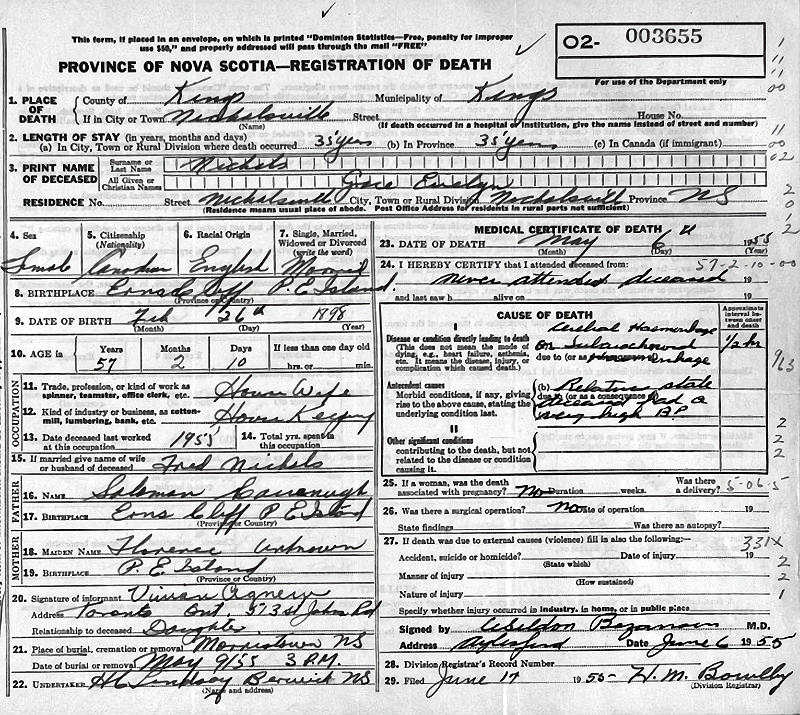 This form, if placed in an envelope, on which is printed "Dominion Statistics—Free, penalty for improper
use $50," and properly addressed will pass through the mail "FREE"
O2- 003655
For use of the Department only
PROVINCE OF NOVA SCOTIA—REGISTRATION OF DEATH
1. PLACE OF DEATH County of Kings Municipality of Kings
If in City or Town Nicholsville Street House No.
(Name) (If death occurred in a hospital or institution, give the name instead of street and number)
2. LENGTH OF STAY (in years, months and days)
(a) In City, Town or Rural Division where death occurred 35 years (b) In Province 35 years (c) In Canada (if immigrant)
3. PRINT NAME OF DECEASED Surname or Last Name Nichols
All Given or Christian Names Grace Evelyn
RESIDENCE No. Street Nicholsville City, Town or Rural Division Nicholsvill Province NS
(Residence means usual place of abode. Post Office Address for residents in rural parts not sufficient)
4. Sex 5. Citizenship (Nationality) 6. Racial Origin 7. Single, Married, Widowed or Divorced (write the word)
Female Canadian English Married
8. BIRTHPLACE Erns Cliff P.E. Island
(Province or Country)
9. DATE OF BIRTH Feb 26th 1898
(Month) (Day) (Year)
10. AGE in Years Months Days If less than one day old
57 2 10 hrs. or min.
OCCUPATION
11. Trade, profession, or kind of work as spinner, teamster, office clerk, etc. House Wife
12. Kind of industry or business, as cotton-mill, lumbering, bank, etc. House Keeping
13. Date deceased last worked at this occupation 1955 14. Total yrs. spent in this occupation
15. If married give name of wife or husband of deceased Fred Nichols
FATHER
16. NAME Soloman Cavanaugh
17. BIRTHPLACE Erns Cliff P E Island
(Province or Country)
MOTHER
18. MAIDEN NAME Florence Unknown
19. BIRTHPLACE P.E. Island
(Province or Country)
20. Signature of informant Vivian Agnew
Address Toronto Ont. 573 St Johns Rd
Relationship to deceased Daughter
21. Place of burial, cremation or removal Morristown NS
Date of burial or removal May 9/55 3 P.M.
22. UNDERTAKER Lindsay Berwick NS
(Name and address)
MEDICAL CERTIFICATE OF DEATH
23. DATE OF DEATH May 6th 1955
(Month) (Day)
24. I HEREBY CERTIFY that I attended deceased from: 57-2-10-00
never attended deceased 19
and last saw h alive on 19
CAUSE OF DEATH Approximate interval between onset and death
I
Disease or condition directly leading to death
(This does not mean the mode of dying, e.g., heart failure, asthenia, etc. It means the disease, injury, or complication which caused death.)
Cerebral Haemorrhage
or Subarachnoid
due to (or as
1/2 hr
Antecedent causes
Morbid conditions, if any, giving rise to the above cause, stating the underlying condition last.
(b) Relatives state
due to (or as a consequence of)
deceased had a
very high B.P.
II
Other significant conditions
contributing to the death, but not related to the disease or condition causing it.
25. If a woman, was the death associated with pregnancy? No Duration weeks. Was there a delivery? 5-06-5
26. Was there a surgical operation? No Date of operation 19
State findings Was there an autopsy?
27. If death was due to external causes (violence) fill in also the following:— 331X
Accident, suicide or homicide? Date of injury 19
(State which)
Manner of injury
(How sustained)
Nature of injury
Specify whether injury occurred in industry, in home, or in public place
Signed by M.D.
Address Aylesford Date June 6 1955
28. Division Registrar's Record Number
29. Filed June 17 1955 H. M. Bowlby
(Division Registrar)